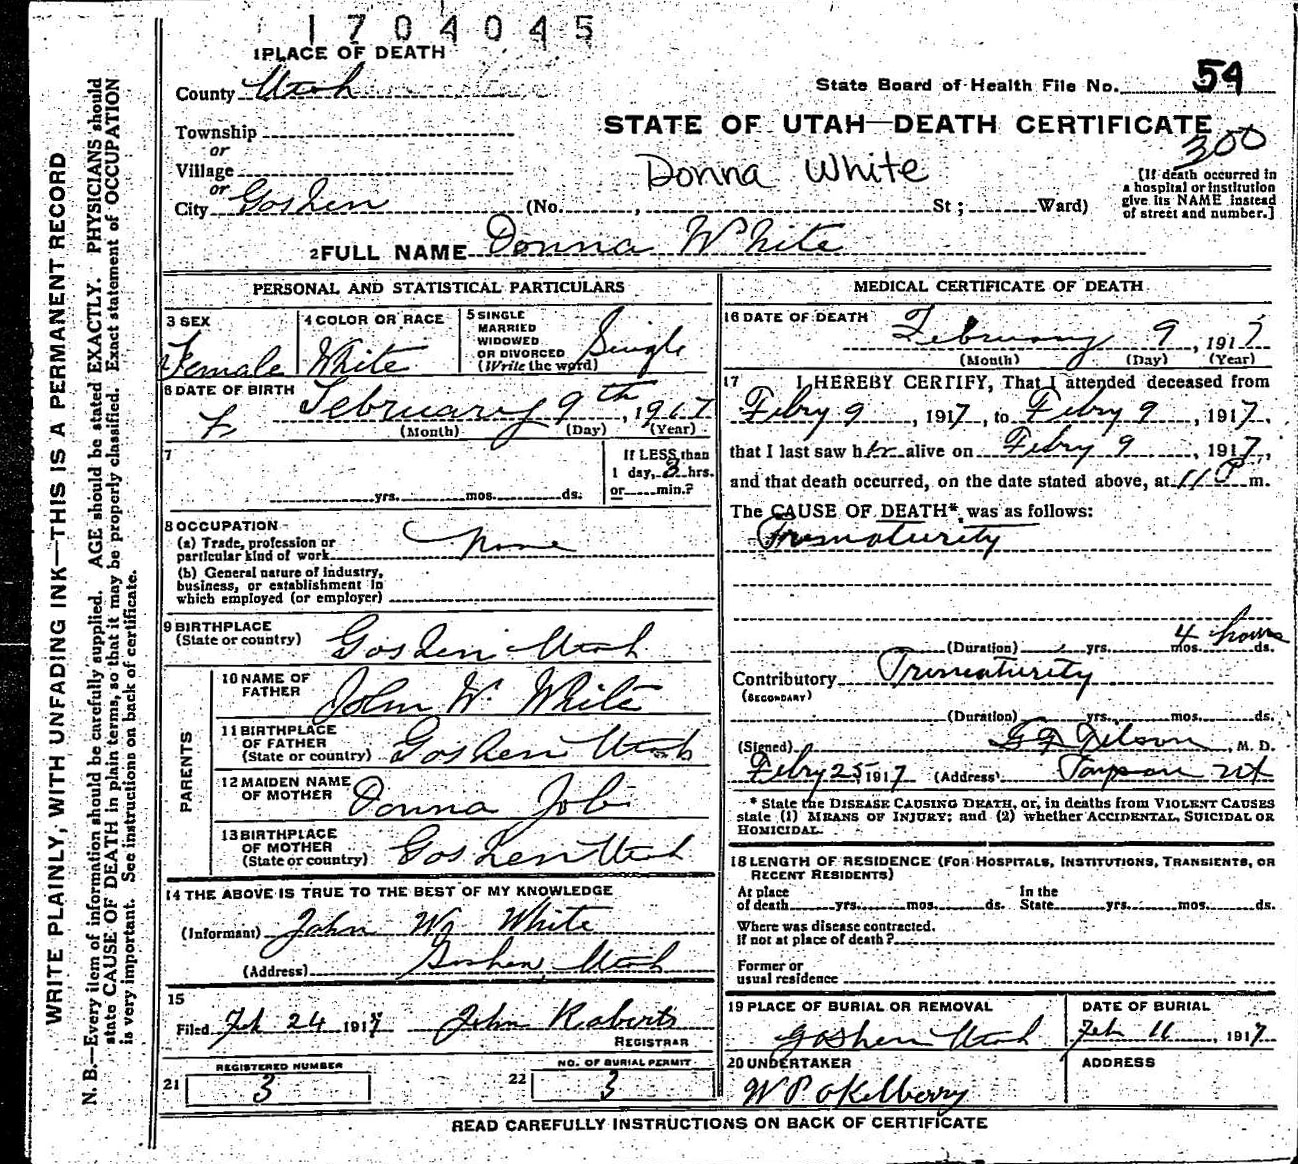 1704045
1 PLACE OF DEATH
County Utah
State Board of Health File No. 54
STATE OF UTAH—DEATH CERTIFICATE
300
Township
or
Village
or
City Goshen (No. , St; Ward)
Donna White
[If death occurred in
a hospital or institution
give its NAME instead
of street and number.]
2 FULL NAME Donna White
PERSONAL AND STATISTICAL PARTICULARS
3 SEX
Female
4 COLOR OR RACE
White
5 SINGLE
MARRIED
WIDOWED
OR DIVORCED
(Write the word)
Single
6 DATE OF BIRTH
February 9th, 1917
(Month) (Day) (Year)
7
yrs. mos. ds.
If LESS than
1 day, 3 hrs.
or min.?
8 OCCUPATION
(a) Trade, profession or
particular kind of work None
(b) General nature of industry,
business, or establishment in
which employed (or employer)
9 BIRTHPLACE
(State or country) Goshen Utah
PARENTS
10 NAME OF
FATHER John W. White
11 BIRTHPLACE
OF FATHER
(State or country) Goshen Utah
12 MAIDEN NAME
OF MOTHER Donna Job
13 BIRTHPLACE
OF MOTHER
(State or country) Goshen Utah
14 THE ABOVE IS TRUE TO THE BEST OF MY KNOWLEDGE
(Informant) John W. White
(Address) Goshen, Utah
15
Filed Feb 24 1917 John Roberts
REGISTRAR
REGISTERED NUMBER
21 3
NO. OF BURIAL PERMIT
22 3
MEDICAL CERTIFICATE OF DEATH
16 DATE OF DEATH
February 9, 1917
(Month) (Day) (Year)
17 I HEREBY CERTIFY, That I attended deceased from
Febry 9, 1917, to Febry 9, 1917,
that I last saw her alive on Febry 9, 1917,
and that death occurred, on the date stated above, at 11 P m.
The CAUSE OF DEATH*, was as follows:
Prematurity
4 hours
(Duration) yrs. mos. ds.
Contributory Prematurity
(SECONDARY)
(Duration) yrs. mos. ds.
(Signed) Nelson, M. D.
Febry 25, 1917 (Address) Payson Ut
* State the DISEASE CAUSING DEATH, or, in deaths from VIOLENT CAUSES
state (1) MEANS OF INJURY; and (2) whether ACCIDENTAL, SUICIDAL OR
HOMICIDAL.
18 LENGTH OF RESIDENCE (FOR HOSPITALS, INSTITUTIONS, TRANSIENTS, OR
RECENT RESIDENTS)
At place
of death yrs. mos. ds.
In the
State yrs. mos. ds.
Where was disease contracted,
if not at place of death?
Former or
usual residence
19 PLACE OF BURIAL OR REMOVAL
Goshen Utah
DATE OF BURIAL
Feb 11, 1917
20 UNDERTAKER
W P Okelberry
ADDRESS
READ CAREFULLY INSTRUCTIONS ON BACK OF CERTIFICATE
WRITE PLAINLY, WITH UNFADING INK—THIS IS A PERMANENT RECORD
N. B.—Every item of information should be carefully supplied. AGE should be stated EXACTLY. PHYSICIANS should
state CAUSE OF DEATH in plain terms, so that it may be properly classified. Exact statement of OCCUPATION
is very important. See instructions on back of certificate.